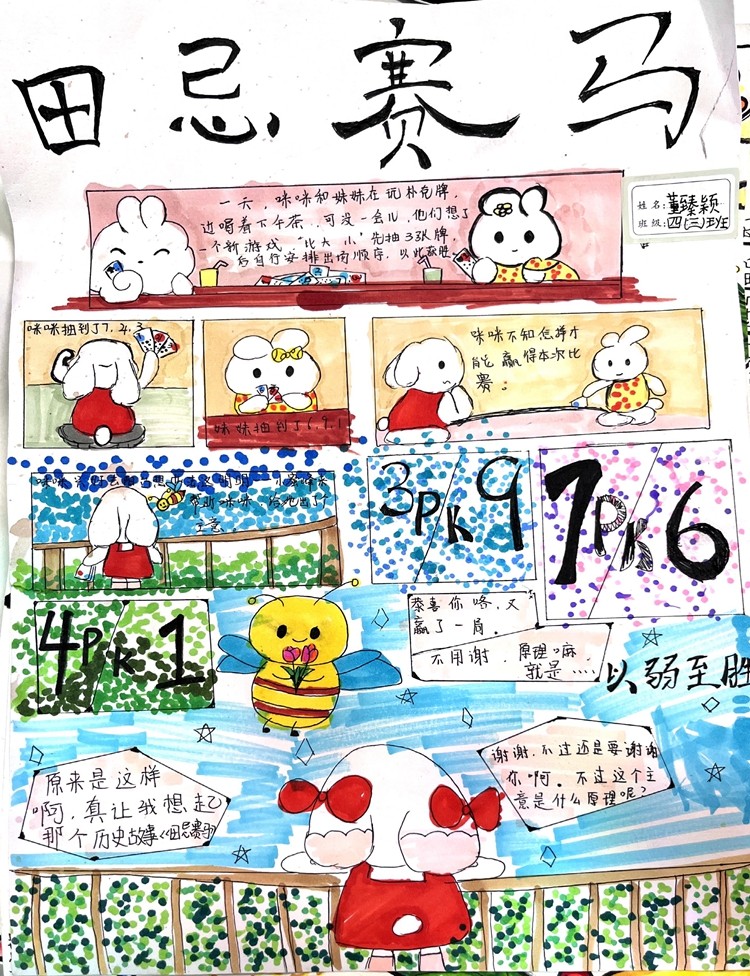 田忌赛马
姓名:董臻颖
班级:四(三)班
一天,咪咪和妹妹在玩朴克牌,
边喝着下午茶,可没一会儿,他们想了
一个新游戏,"比大小"先抽3张牌,
后自行安排出的顺序,以此获胜
咪咪抽到了7.4.3
妹妹抽到了6.9.1
咪咪不知怎样才
能赢得本次比
赛。
帮助咪咪,给她出了个
主意
3PK9
7PK6
4PK1
恭喜你咯,又
赢了一局。
不用谢,原理嘛
就是……
以弱至胜
谢谢,不过还是要谢谢
你啊。不过这个主
意是什么原理呢?
原来是这样
啊,真让我想起
那个历史故事《田忌赛马》